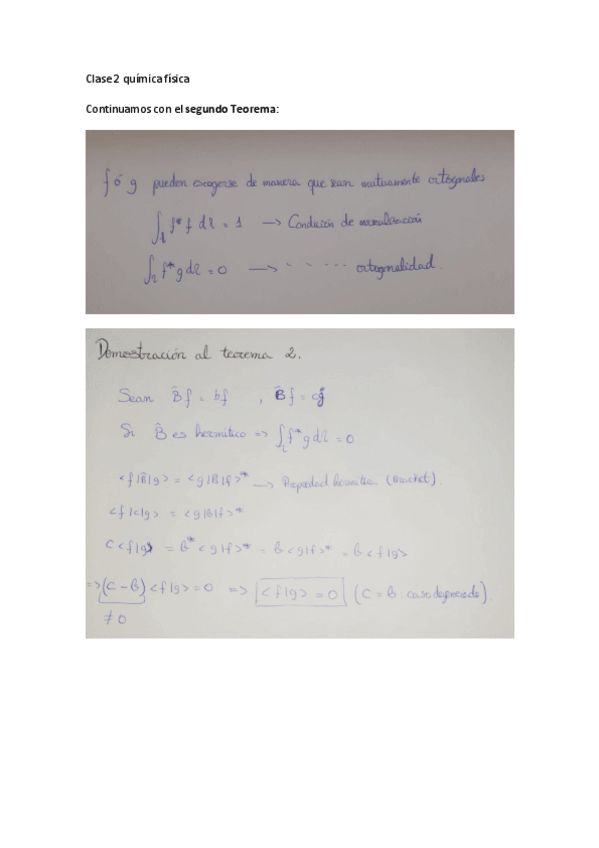 Clase 2 química física
Continuamos con el segundo Teorema:
f ó g pueden escogerse de manera que sean mutuamente ortogonales
∫ f* f dl = 1 → Condición de normalización
∫ f* g dl = 0 → " ..... ortogonalidad.
Demostración al teorema 2.
Sean B̂f = bf , B̂f = cg
Si B̂ es hermítico => ∫ f* g dl = 0
<f|B̂|g> = <g|B|f>* → Propiedad hermítica (Bracket).
<f|c|g> = <g|B|f>*
C<f|g> = b* <g|f>* = b <g|f>* = b <f|g>
=> (C - b) <f|g> = 0 => <f|g> = 0 (C = b · caso degenerado).
≠ 0